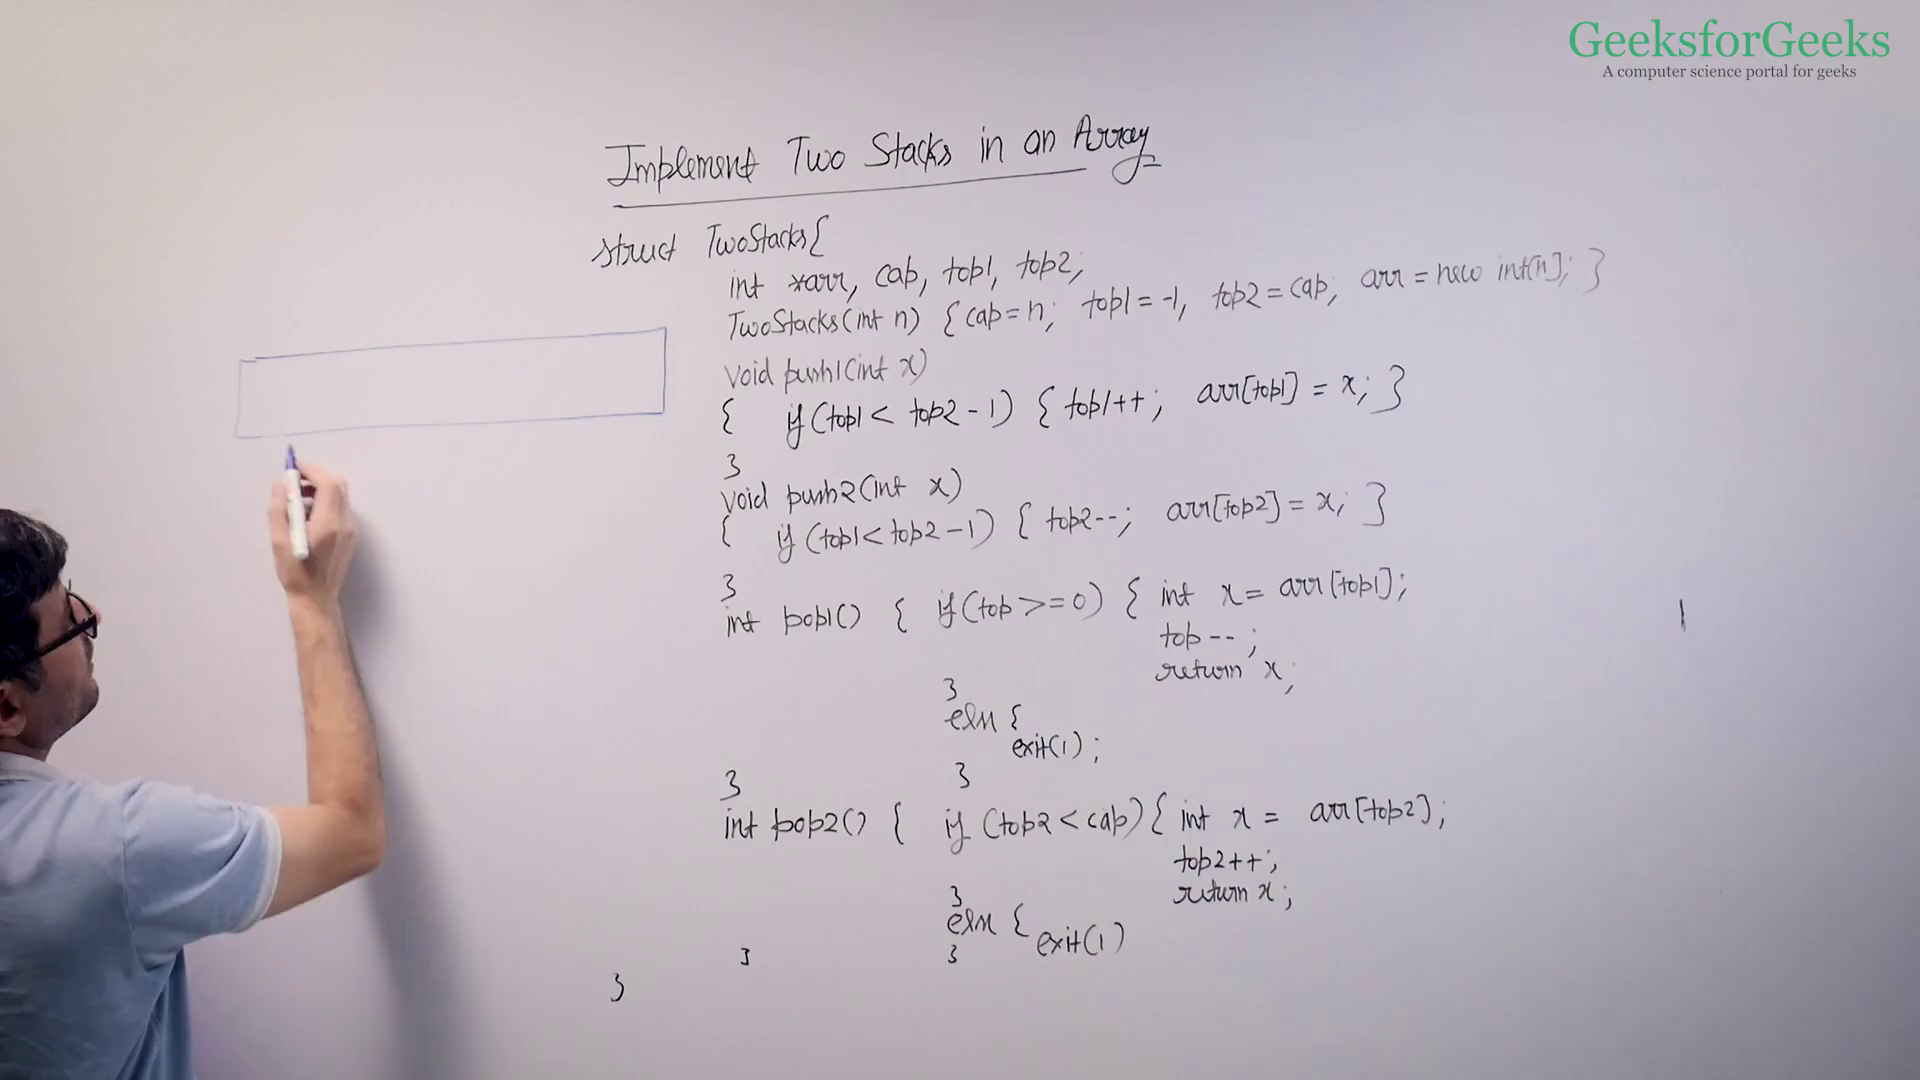 GeeksforGeeks
A computer science portal for geeks
Implement Two Stacks in an Array
struct TwoStacks{
int *arr, cap, top1, top2;
TwoStacks(int n) {cap=n; top1=-1, top2=cap; arr=new int[n]; }
void push1(int x)
{ if(top1< top2-1) { top1++; arr[top1] = x; }
}
void push2(int x)
{ if(top1<top2-1) { top2--; arr[top2]=x; }
}
int pop1() { if(top>=0) { int x= arr[top1];
top--;
return x;
}
else {
exit(1);
}
}
int pop2() { if (top2<cap){ int x = arr[top2];
top2++;
return x;
}
else { exit(1)
}
}
}